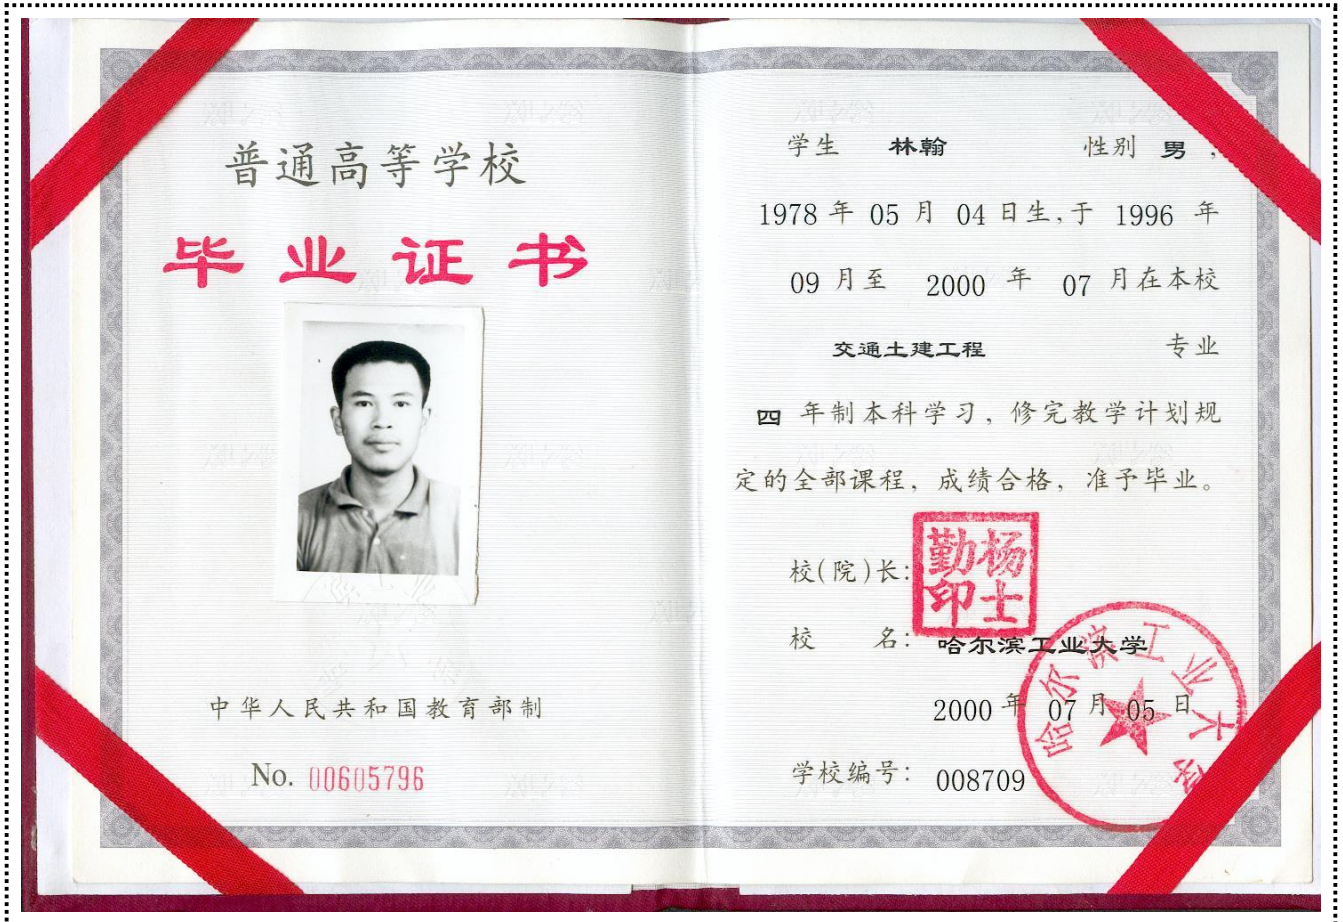 普通高等学校
毕业证书
中华人民共和国教育部制
No. 00605796
学生 林翰 性别 男，
1978 年 05 月 04 日生,于 1996 年
09 月至 2000 年 07 月在本校
交通土建工程 专业
四 年制本科学习，修完教学计划规
定的全部课程，成绩合格，准予毕业。
校(院)长: 杨士勤印
校 名: 哈尔滨工业大学
哈尔滨工业大学
2000 年 07 月 05 日
学校编号: 008709